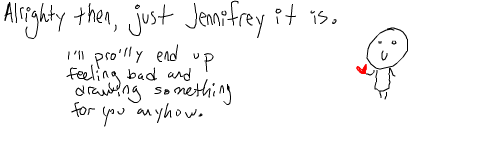 Alrighty then, just Jennifrey it is.
I'll prolly end up
feeling bad and
drawing something
for you anyhow.